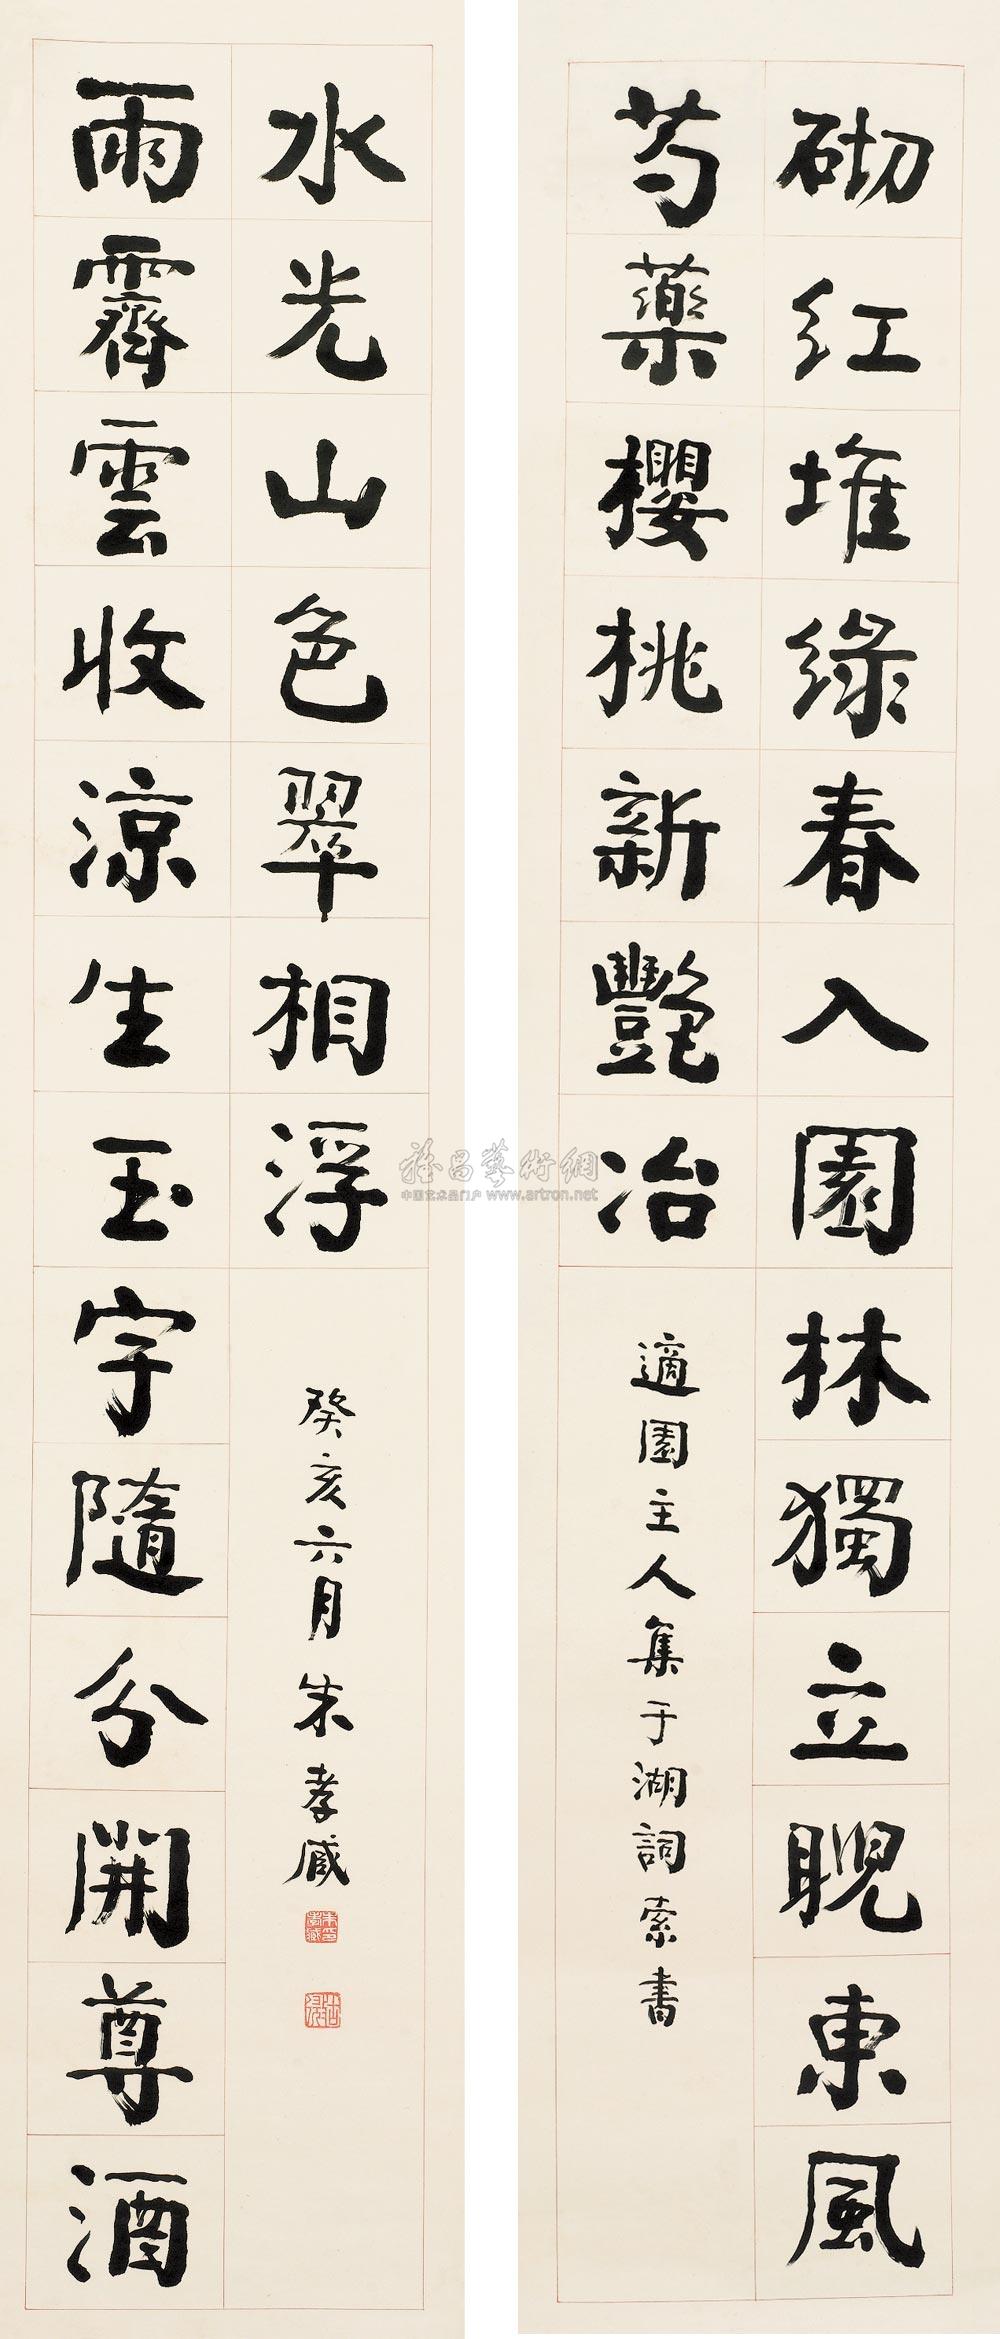 砌紅堆綠春入園林獨立睨東風
芍藥櫻桃新艷冶
適園主人集于湖詞索書
雨霽雲收涼生玉宇隨分開尊酒
水光山色翠相浮
癸亥六月朱孝臧
朱印孝臧
雅昌藝術網
中国艺术品门户 www.artron.net